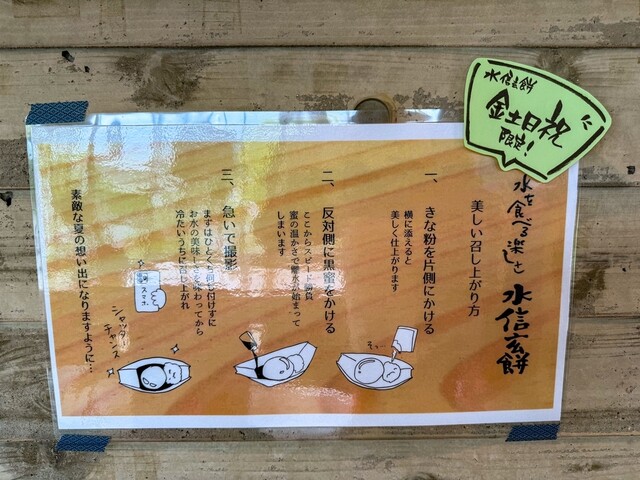 水信玄餅
金土日祝
限定!
水を食べる楽しさ 水信玄餅
美しい召し上がり方
一、きな粉を片側にかける
横に添えると
美しく仕上がります
二、反対側に黒蜜をかける
ここからスピード勝負
蜜の温かさで離水が始まって
しまいます
三、急いで撮影
まずはひとくち何も付けずに
お水の美味しさを味わってから
冷たいうちに召し上がれ
スマホ
シャッター
チャンス
素敵な夏の想い出になりますように…